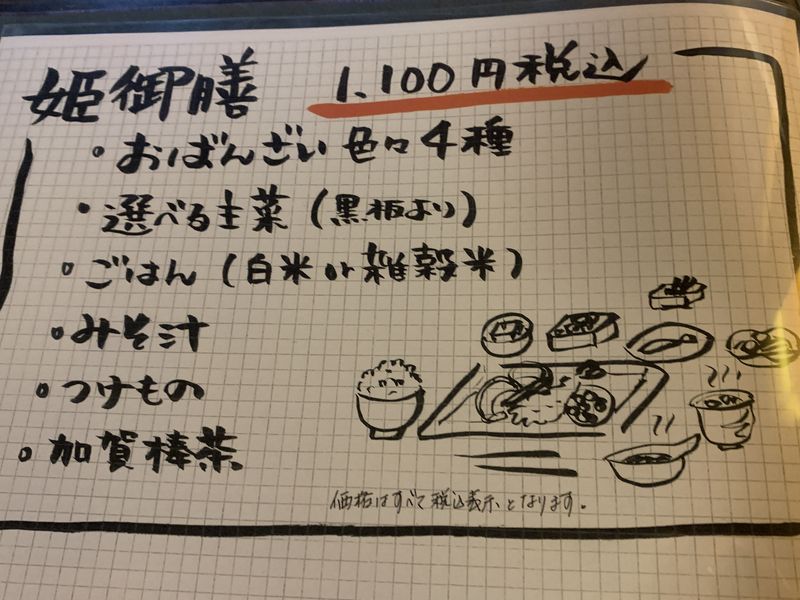 姫御膳 1,100円税込
・おばんざい色々4種
・選べる主菜(黒板より)
・ごはん(白米or雑穀米)
・みそ汁
・つけもの
・加賀棒茶
価格はすべて税込表示となります。